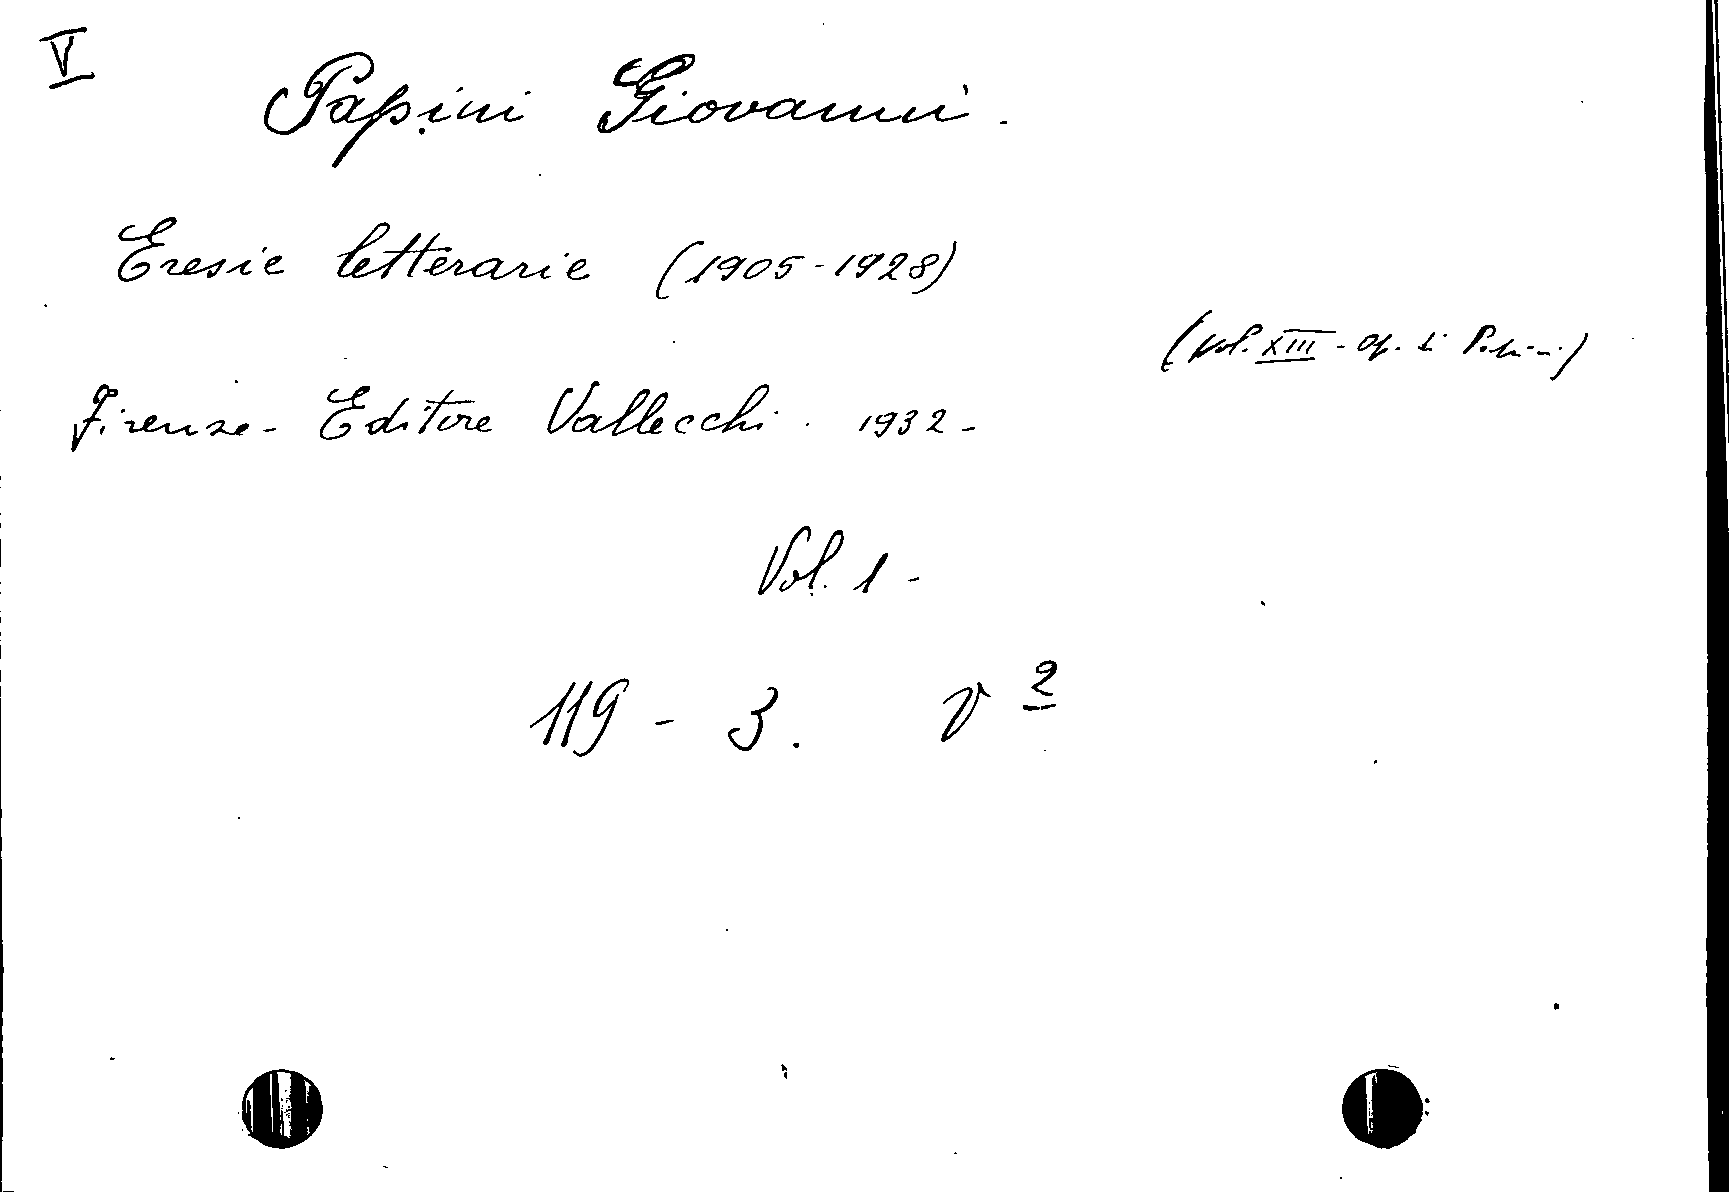 V
Papini Giovanni.
Eresie letterarie (1905-1928)
(vol. XIII - op. di Papini)
Firenze - Editore Vallecchi. 1932 -
Vol. 1 -
119 - 3. V 2